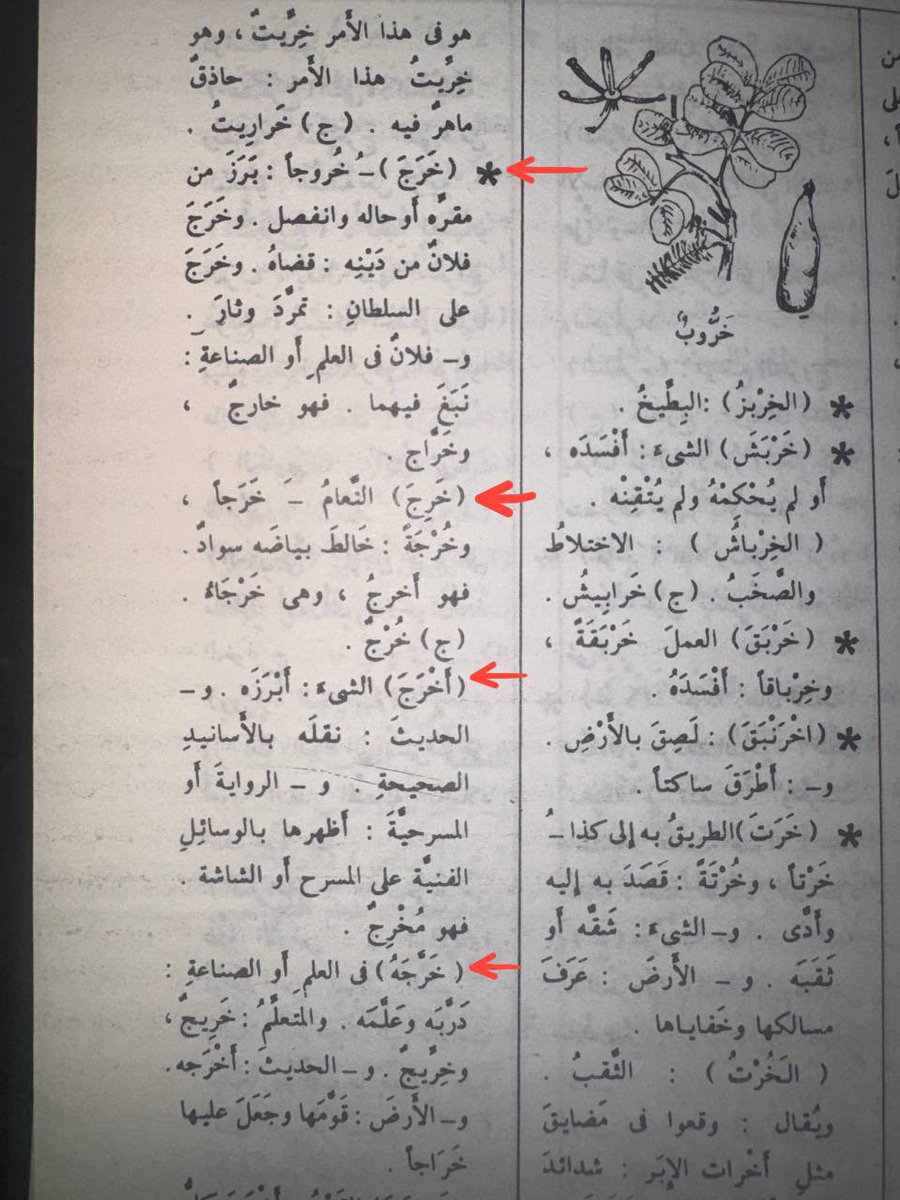 خَرُّوبٌ
* (الخِرْبِزُ) : البِطِّيخُ .
* (خَرْبَشَ) الشىءَ : أَفْسَدَه ،
أَو لم يُحْكِمْهُ ولم يُتْقِنْه .
( الخِرْباشُ ) : الاختلاطُ
والصَّخَبُ . (ج) خَرابِيشُ .
* (خَرْبَقَ) العملَ خَرْبَقَةً ،
وخِرْباقاً : أَفْسَدَهُ .
* (اخْرَنْبَقَ) : لَصِقَ بالأَرْضِ .
و– : أَطْرَقَ ساكتاً .
* (خَرَتَ) الطريقُ به إلى كذا –ُ
خَرْتاً ، وخُرْتَةً : قَصَدَ به إليه
وأَدَّى . و– الشىءَ : شَقَّه أَو
ثَقَبَه . و – الأَرضَ : عَرَفَ
مسالكها وخَفاياها .
( الخُرْتُ ) : الثَّقبُ .
ويُقال : وقعوا فى مَضايقَ
مثلِ أَخْرات الإبَر : شدائدَ
هو فى هذا الأَمر خِرِّيتٌ ، وهو
خِرِّيتُ هذا الأَمر : حاذقٌ
ماهرٌ فيه . (ج) خَرارِيتُ .
* (خَرَجَ) –ُ خُروجاً : بَرَزَ من
مقرّه أَو حاله وانفصل . وخَرَجَ
فلانٌ من دَيْنِه : قضاهُ . وخَرَجَ
على السلطانِ : تمرَّدَ وثارَ .
و– فلانٌ فى العلم أَو الصناعةِ :
نَبَغَ فيهما . فهو خارجٌ ،
وخَرَّاج .
(خَرِجَ) النَّعامُ –َ خَرَجاً ،
وخُرْجَةً : خَالطَ بياضَه سوادٌ .
فهو أَخرجُ ، وهى خَرْجَاءُ .
(ج) خُرْجٌ .
(أَخْرَجَ) الشىءَ : أَبْرَزَه . و–
الحديثَ : نقلَه بالأَسانيدِ
الصحيحةِ . و – الروايةَ أَو
المسرحيَّةَ : أَظهرها بالوسائلِ
الفنيَّة على المسرح أَو الشاشة .
فهو مُخْرِجٌ .
(خَرَّجَهُ) فى العلم أَو الصناعةِ :
دَرَّبَه وعَلَّمَه . والمتعلِّمُ : خَرِيجٌ ،
وخِرِّيجٌ . و– الحديثَ : أَخْرَجه .
و– الأَرضَ : قَوَّمَها وجَعَلَ عليها
خَرَاجاً .